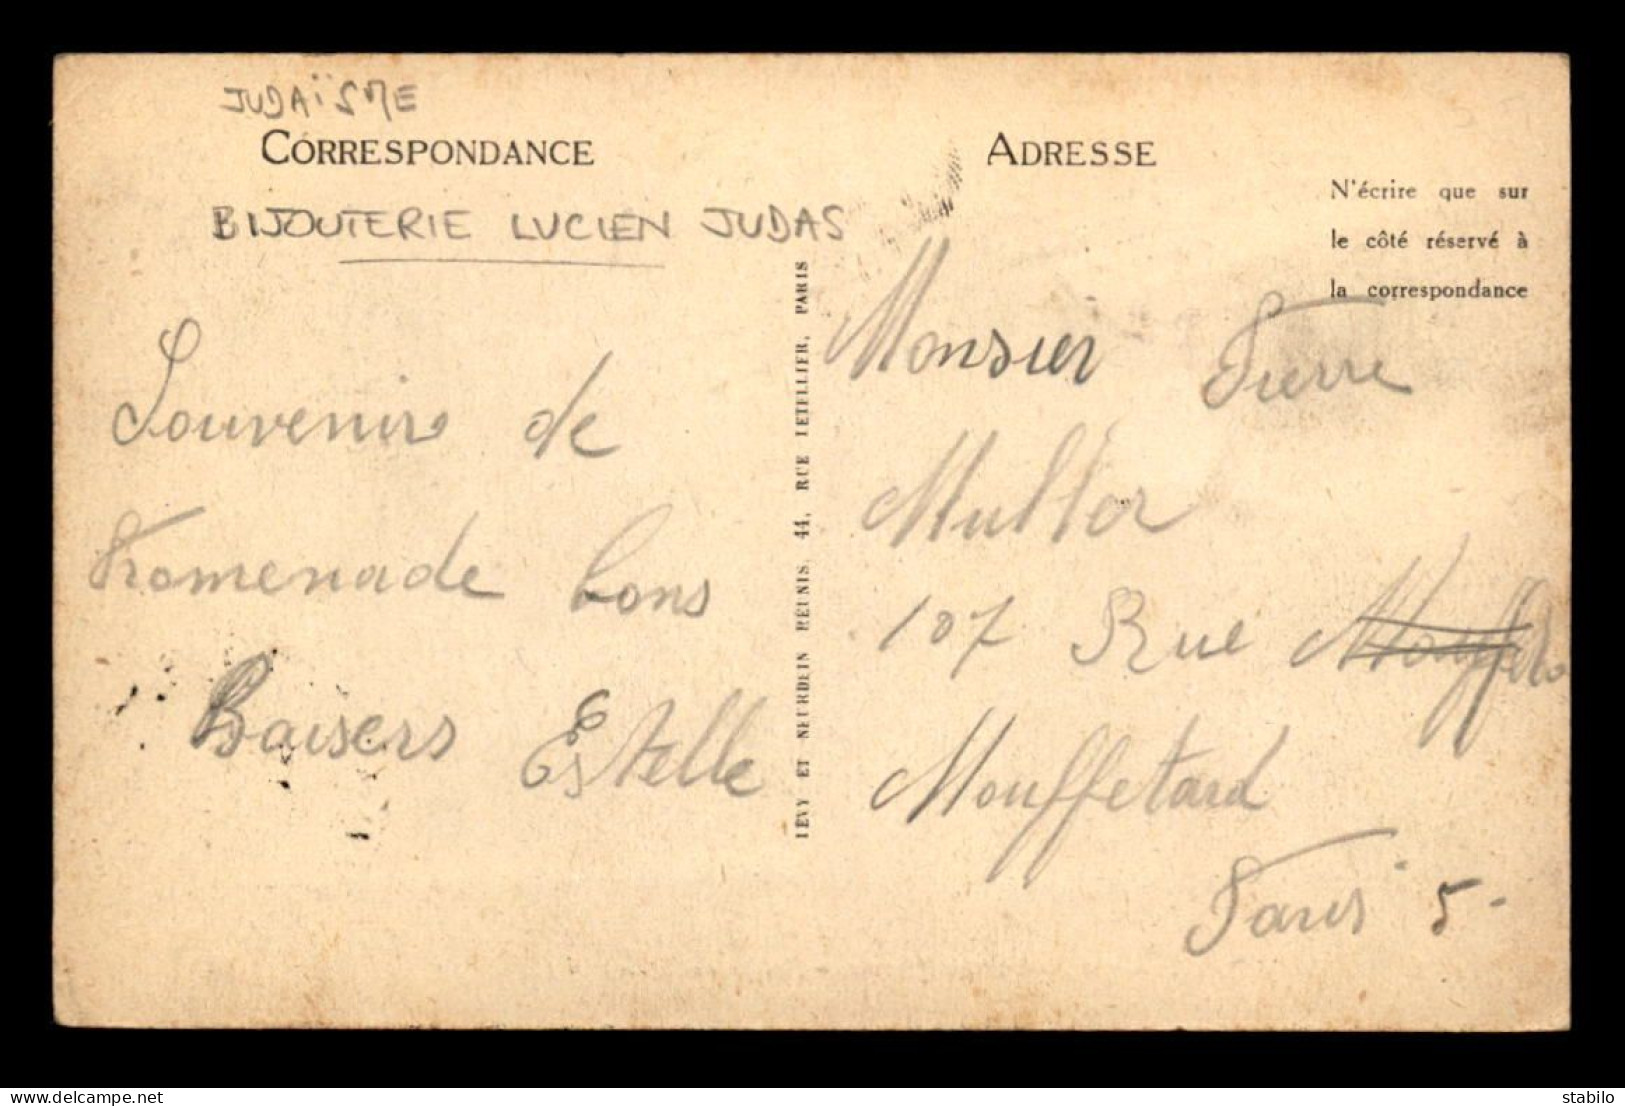 JUDAÏSME
CORRESPONDANCE
BIJOUTERIE LUCIEN JUDAS
Souvenir de
Promenade bons
Baisers Estelle
LEVY ET NEURDEIN RÉUNIS, 44, RUE LETELLIER, PARIS
ADRESSE
N'écrire que sur
le côté réservé à
la correspondance
Monsier Pierre
Muller
107 Rue Mouffeta
Mouffetard
Paris 5-
delcampe.net
stabilo